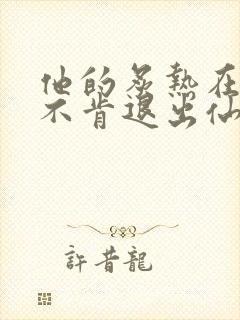 他的炙熱在
不肯退出仙
許昔龍